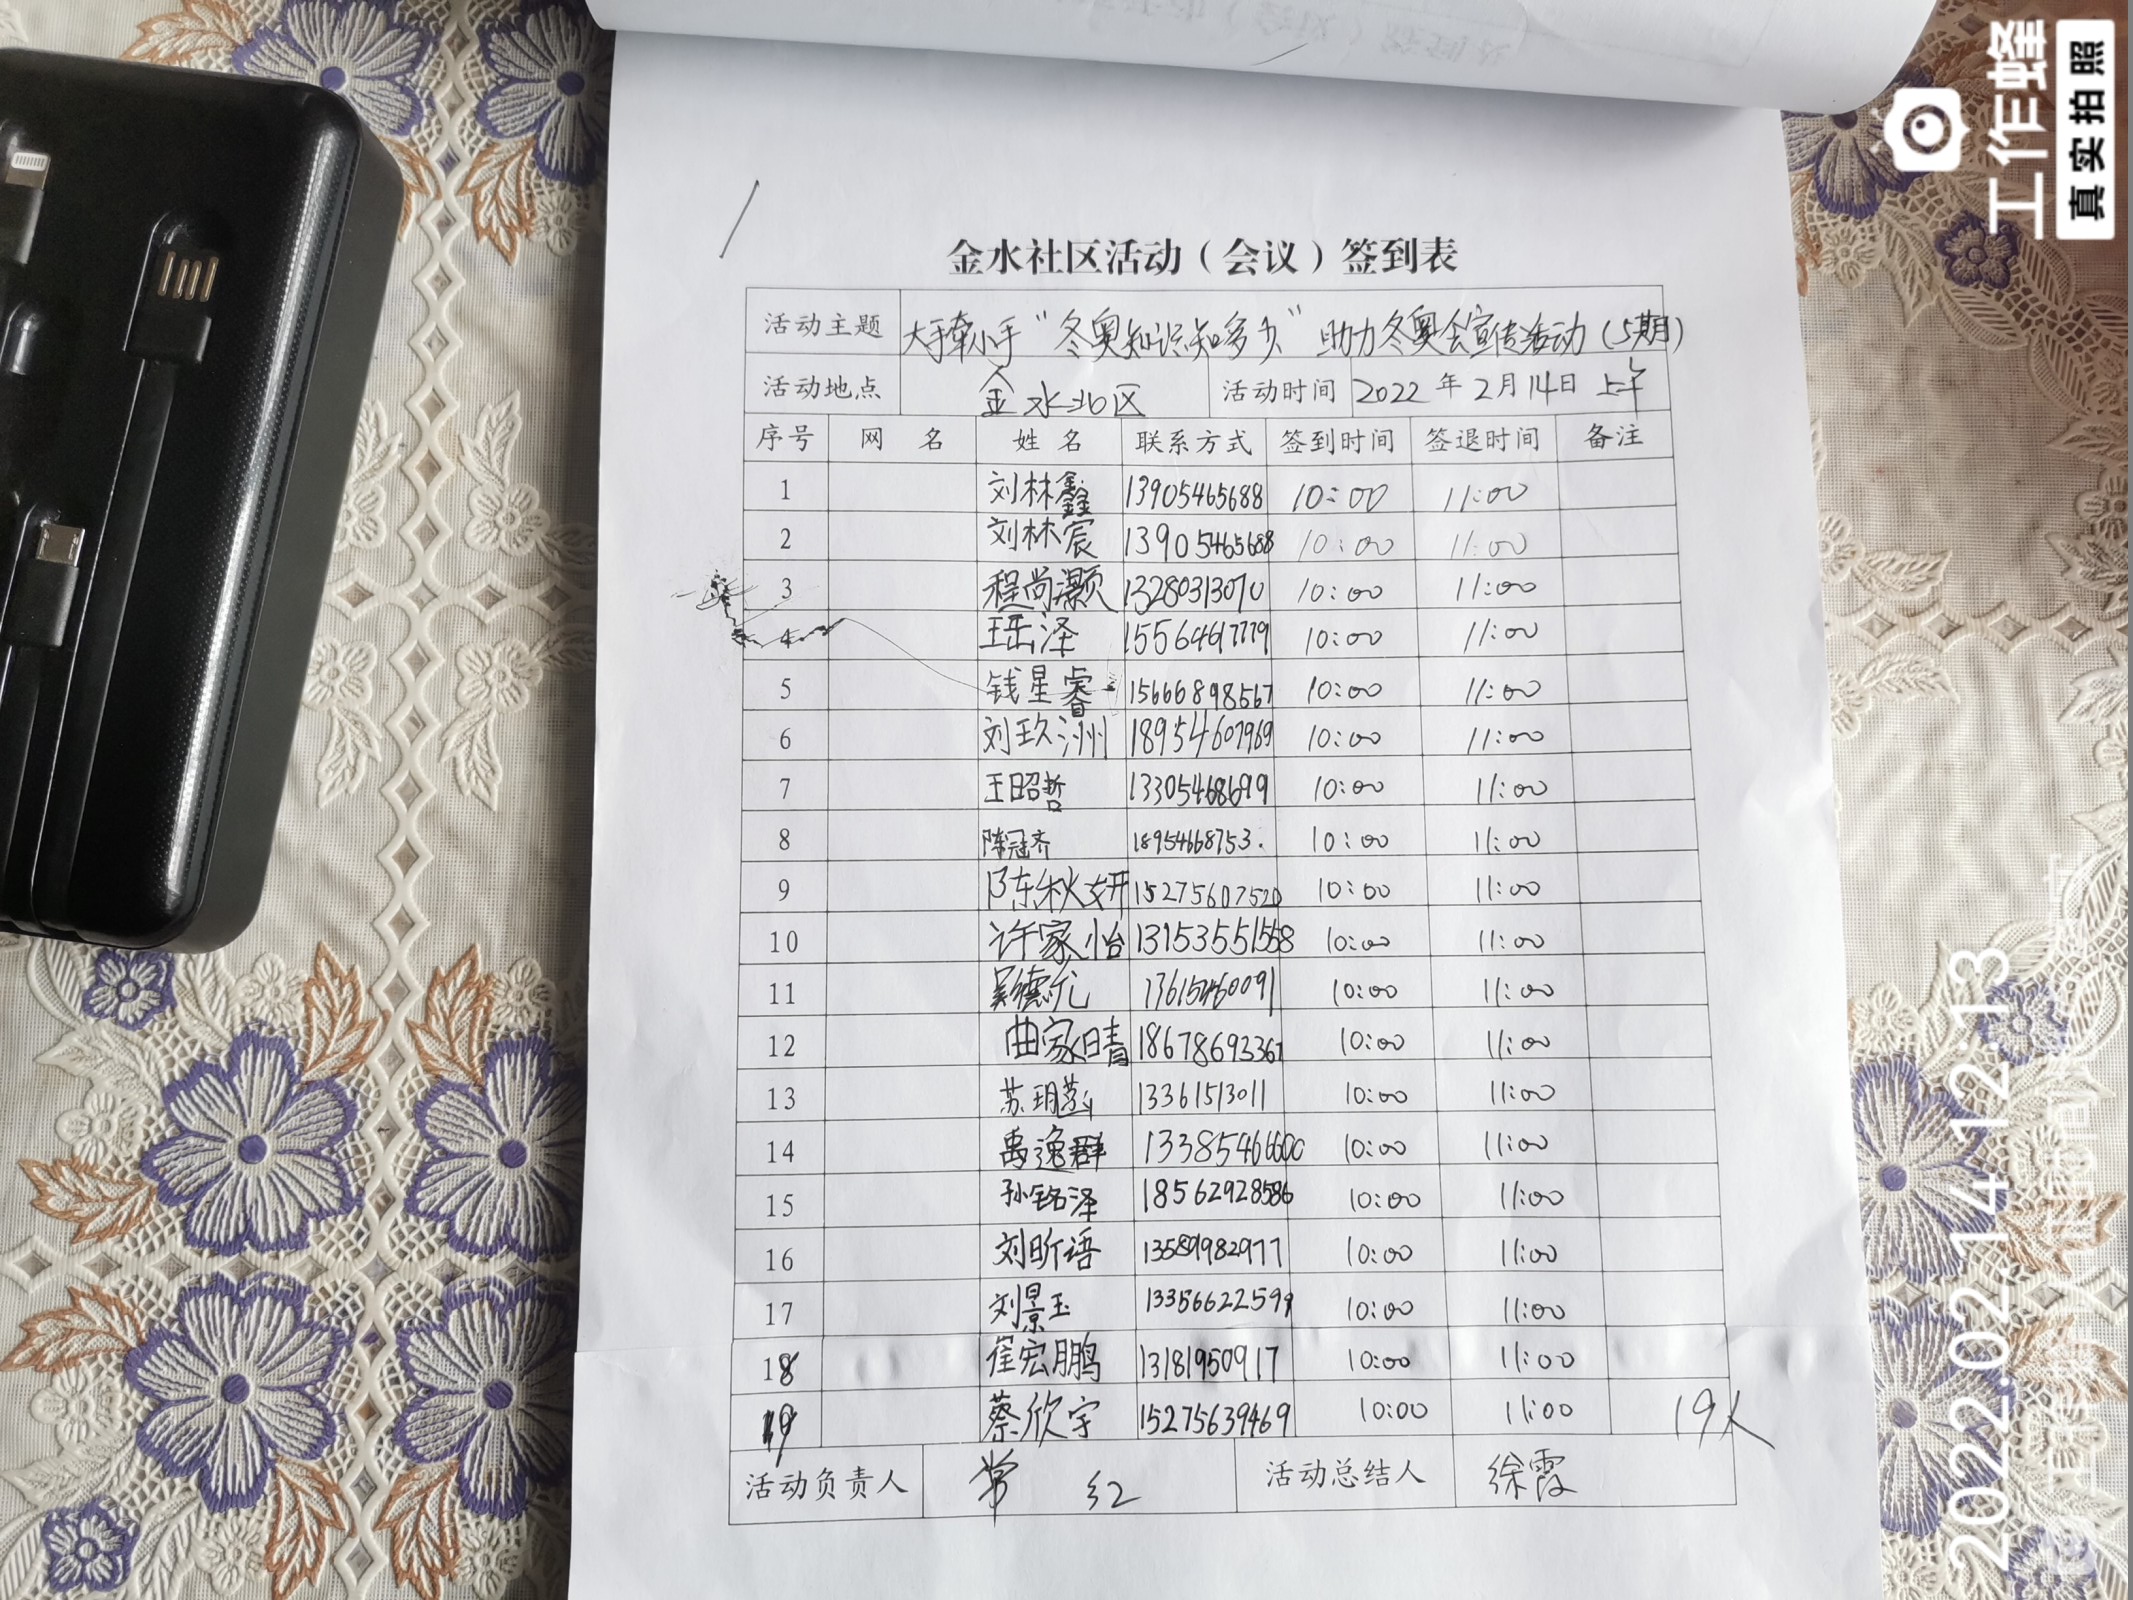 金水社区活动（会议）签到表
活动主题 大手牵小手“冬奥知识知多少”助力冬奥会宣传活动（5期）
活动地点 金水北区 活动时间 2022年2月14日 上午
序号 网 名 姓 名 联系方式 签到时间 签退时间 备注
1 刘林鑫 13905465688 10:00 11:00
2 刘林宸 13905465688 10:00 11:00
3 程尚灏 13280313070 10:00 11:00
4 王岳泽 15564617779 10:00 11:00
5 钱星睿 15666898567 10:00 11:00
6 刘玖洲 18954607969 10:00 11:00
7 王昭哲 13305468699 10:00 11:00
8 陈冠齐 18954668753. 10:00 11:00
9 陈秋妍 15275607520 10:00 11:00
10 许家怡 13153551558 10:00 11:00
11 吴德允 13615460091 10:00 11:00
12 曲家晴 18678693367 10:00 11:00
13 苏玥 13361513011 10:00 11:00
14 禹逸群 13385466600 10:00 11:00
15 孙铭泽 18562928586 10:00 11:00
16 刘昕语 13589982977 10:00 11:00
17 刘景玉 13356622599 10:00 11:00
18 崔宏鹏 13181950917 10:00 11:00
19 蔡欣宇 15275639469 10:00 11:00 19人
活动负责人 常 红 活动总结人 徐霞
工作蜂
真实拍照
2022.02.14 12:13